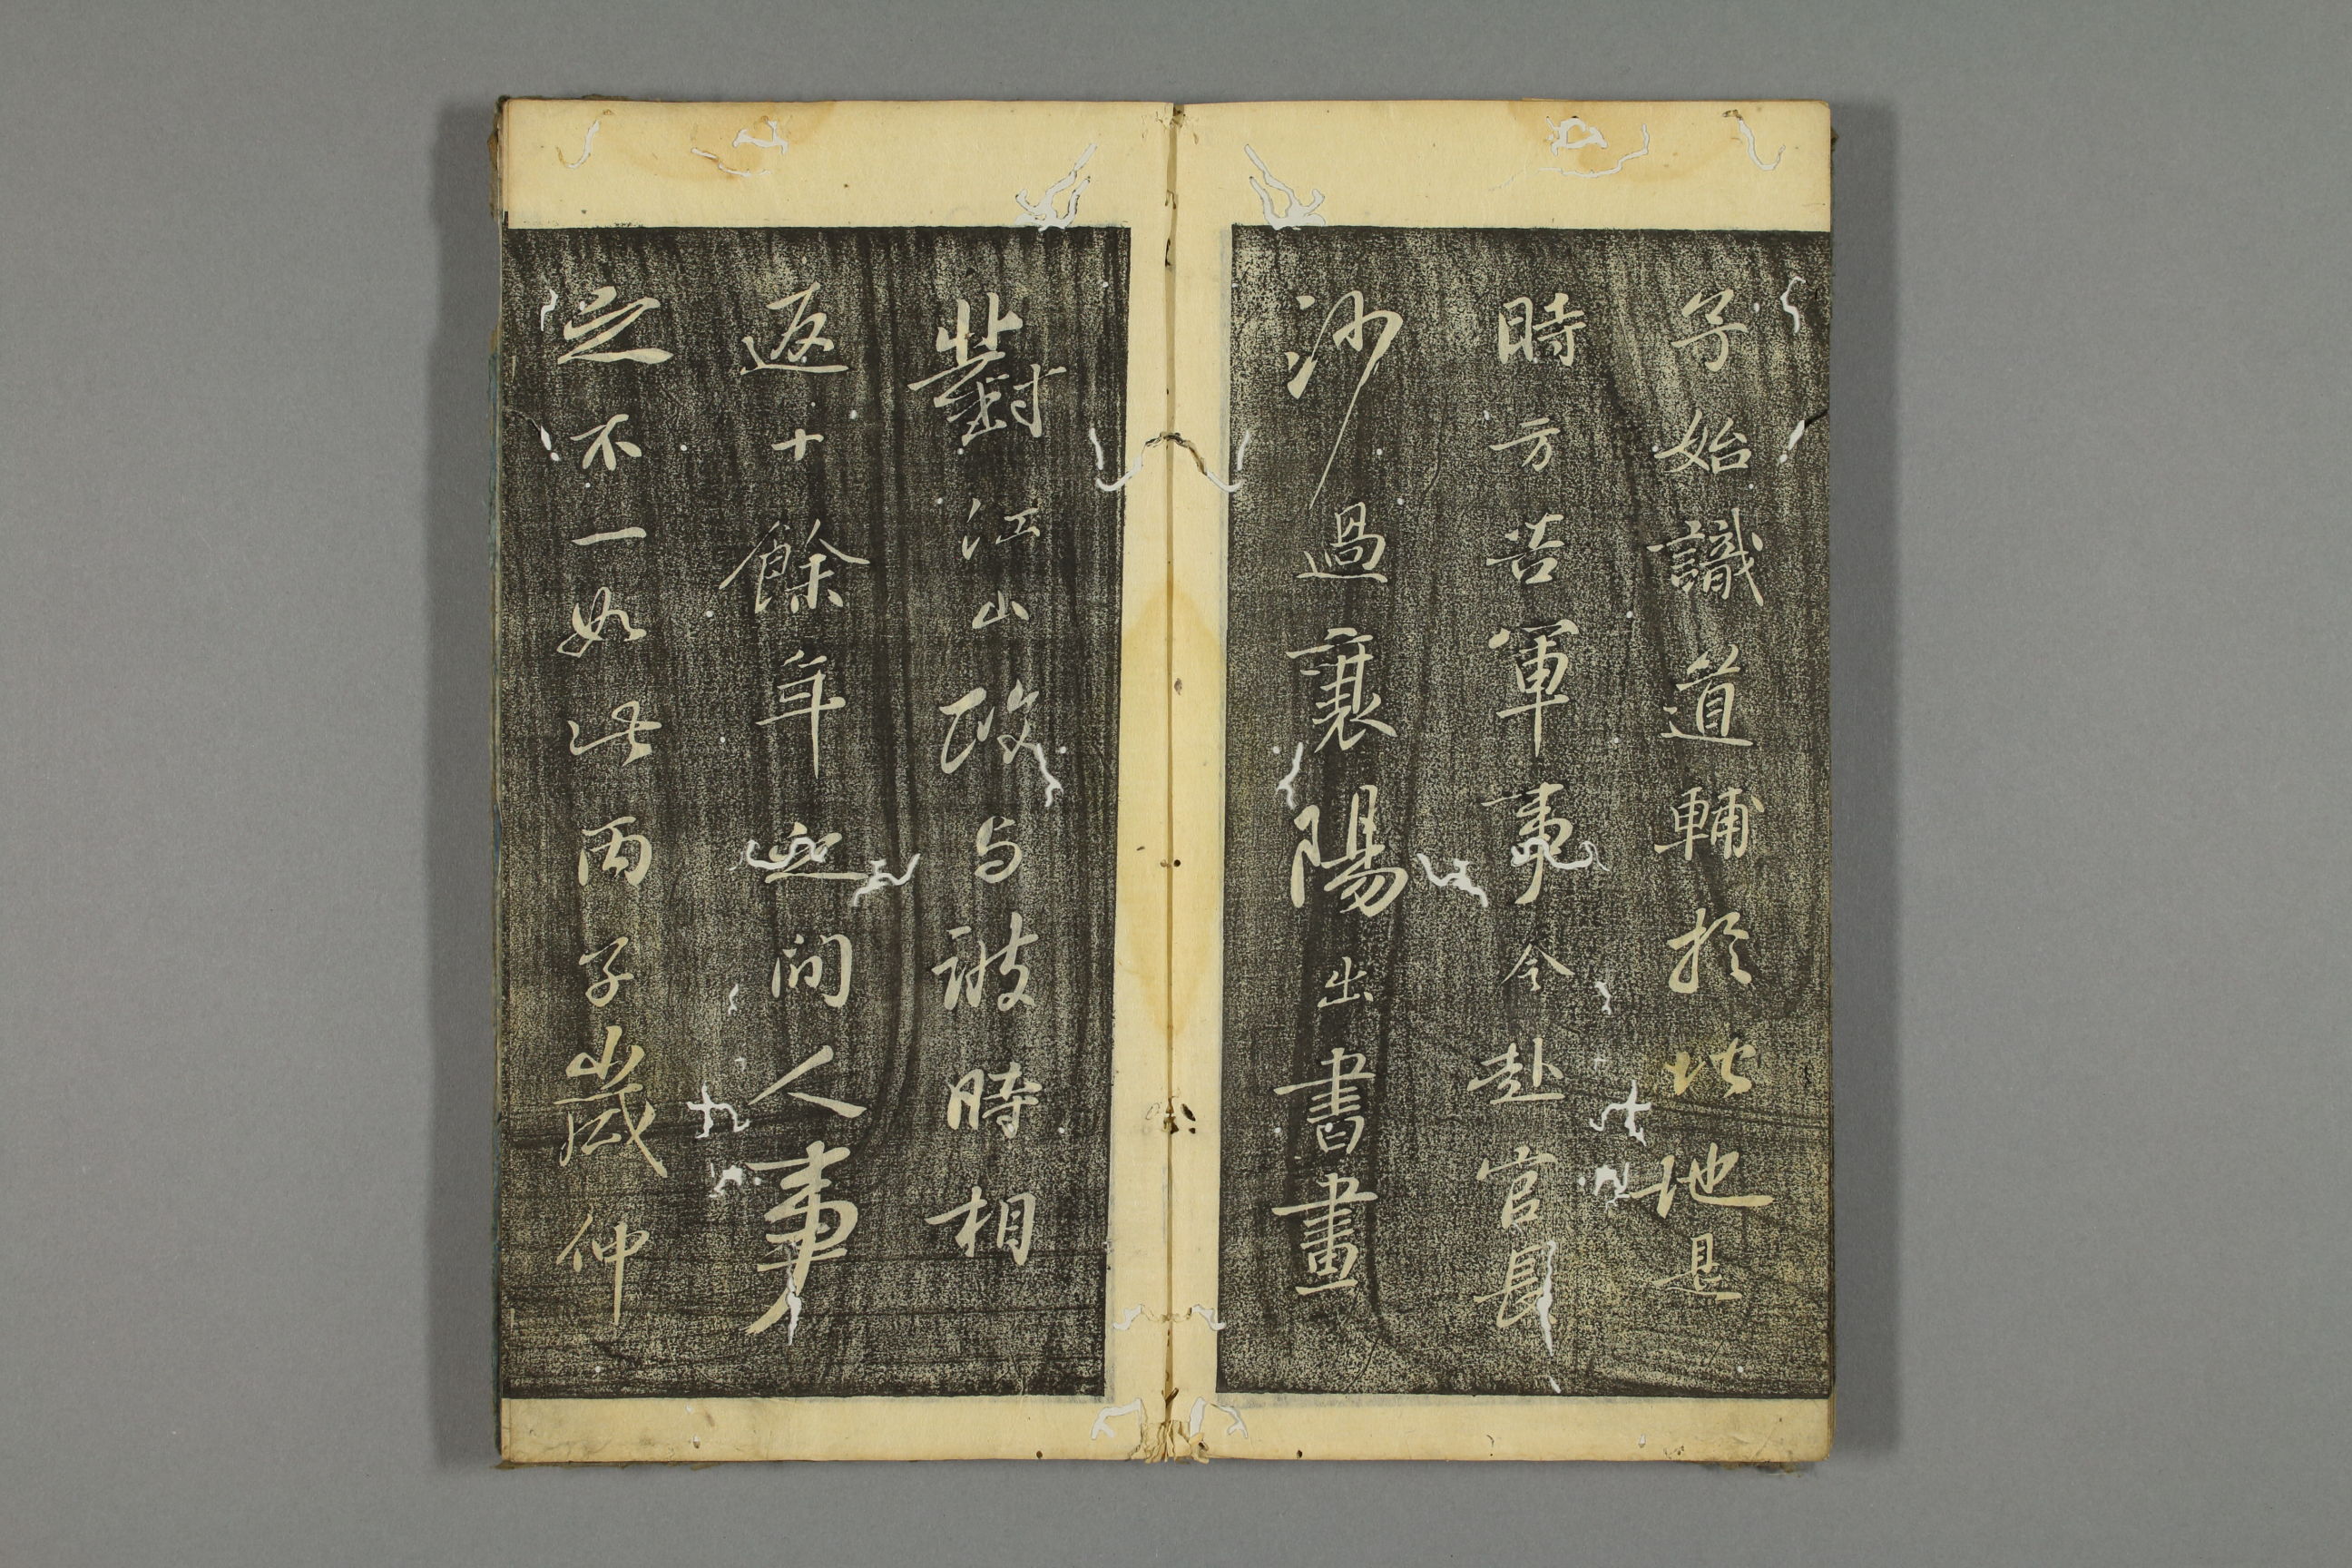 予始識道輔於此地是
時方苦軍事今赴官長
沙過襄陽出書畫
對江山政与彼時相
返十餘年之間人事
之不一如此丙子歲仲